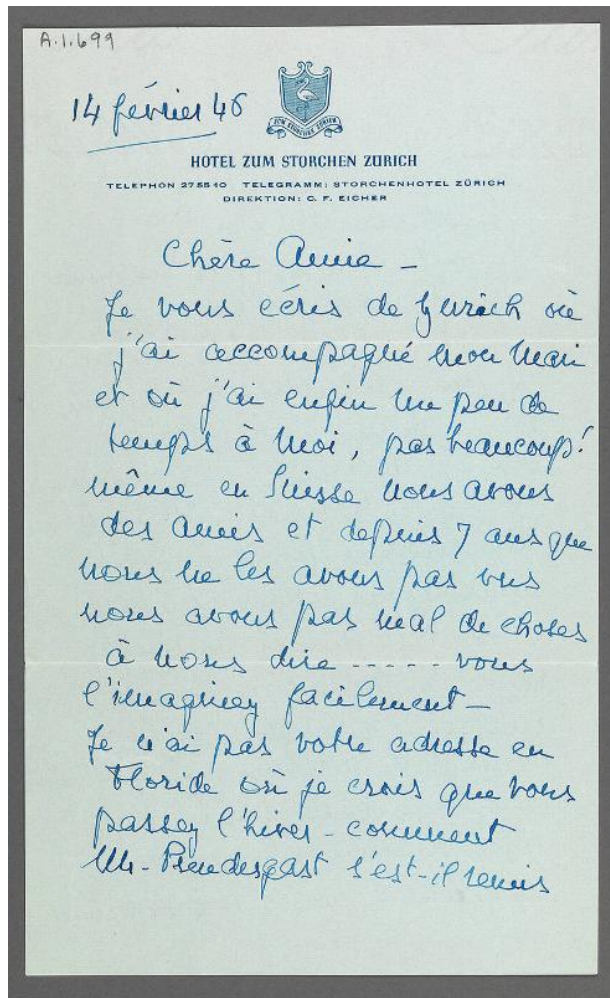 A.1.699
14 février 46
ZUM STORCHEN ZÜRICH
HOTEL ZUM STORCHEN ZÜRICH
TELEPHON 275510 TELEGRAMM: STORCHENHOTEL ZÜRICH
DIREKTION: C. F. EICHER
Chère Annie –
Je vous écris de Zurich où
j'ai accompagné mon Mari
et où j'ai enfin un peu de
temps à moi, pas beaucoup!
même en Suisse nous avons
des amis et depuis 7 ans que
nous ne les avons pas vus
nous avons pas mal de choses
à nous dire ----- vous
l'imaginez facilement –
Je n'ai pas votre adresse en
Floride où je crois que vous
passez l'hiver – comment
Mr – Prendergast s'est-il remis